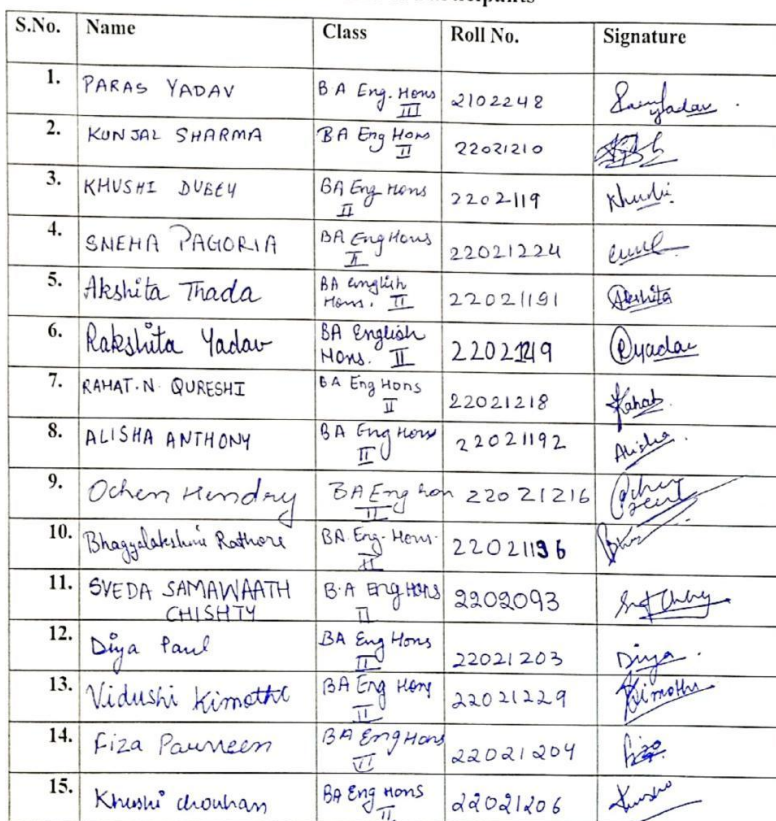 Participants
S.No. Name Class Roll No. Signature
1. PARAS YADAV BA Eng. Hons III 2102248 Yadav
2. KUNJAL SHARMA BA Eng Hons II 22021210
3. KHUSHI DUBEY BA Eng Hons II 2202119 Khushi
4. SNEHA PAGORIA BA Eng Hons II 22021224
5. Akshita Thada BA English Hons. II 22021191 Akshita
6. Rakshita Yadav BA English Hons. II Ryadav
7. RAHAT.N. QURESHI BA Eng Hons II 22021218 Rahat
8. ALISHA ANTHONY BA Eng Hons II 22021192 Alisha
9. Ochen Hendry BA Eng hon II 22021216
10. Bhagyalakshmi Rathore BA. Eng. Hons. II 22021196
11. SVEDA SAMAWAATH CHISHTY B.A Eng Hons II 2202093
12. Diya Paul BA Eng Hons II 22021203 Diya
13. Vidushi Kimothi BA Eng Hons II 22021229 Kimothi
14. Fiza Parveen BA Eng Hons II 22021204
15. Khushi chouhan BA Eng Hons II 22021206